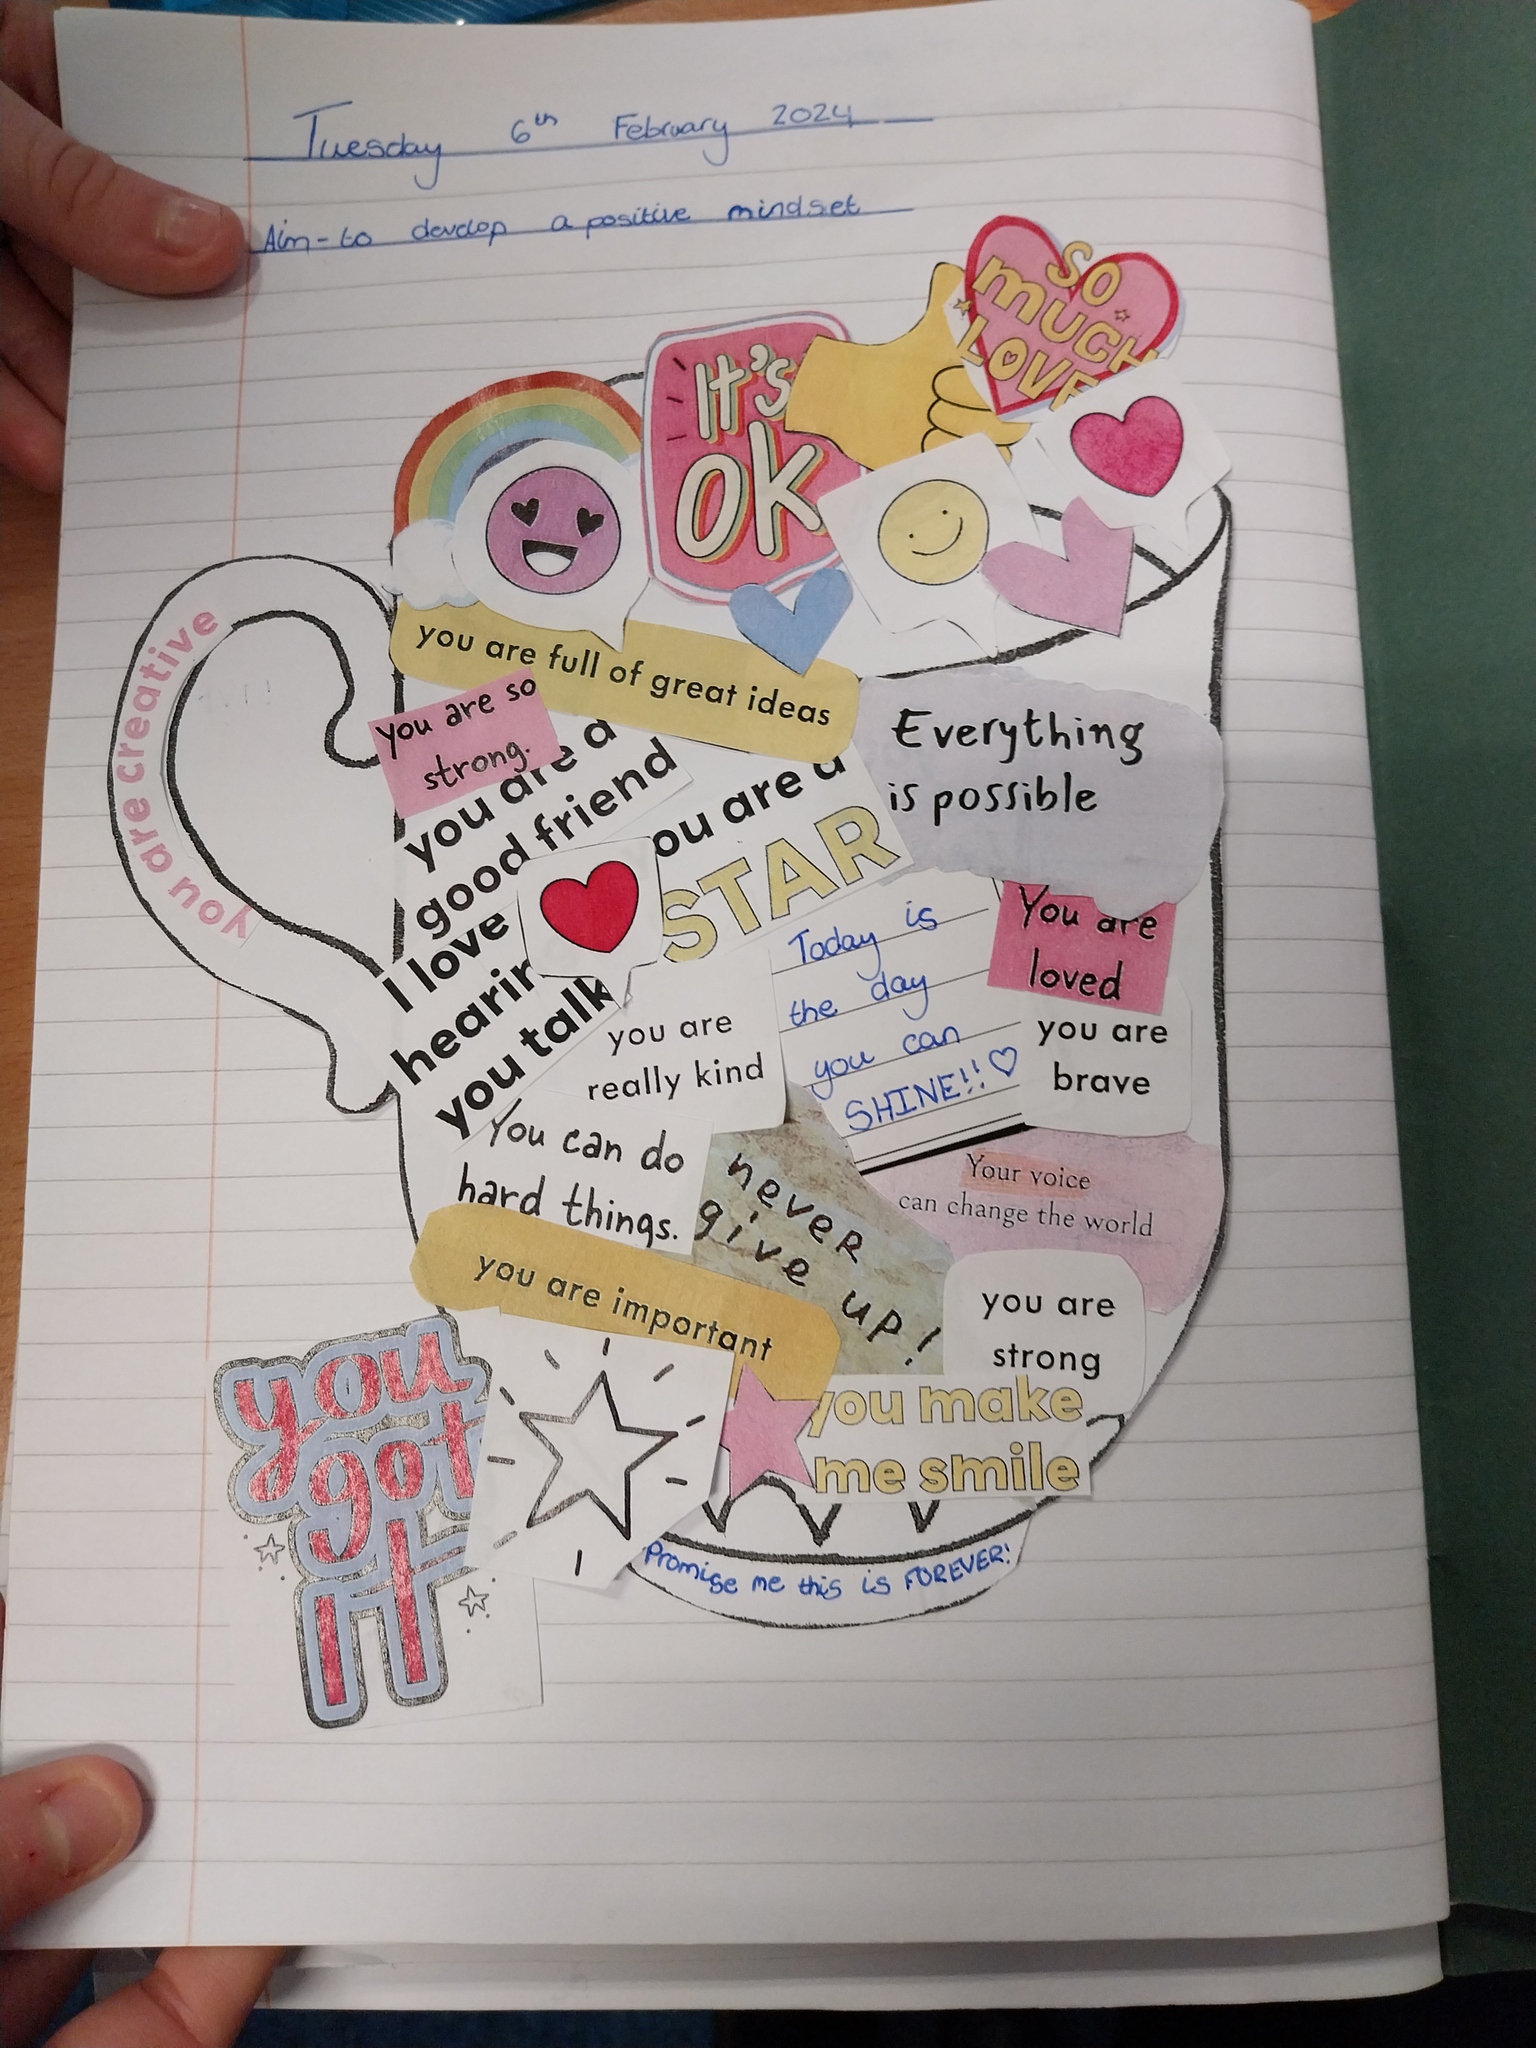 Tuesday 6th February 2024
Aim-to develop a positive mindset
SO
MUCH
LOVE
It's
OK
you are creative
you are full of great ideas
you are so
strong.
you are a
good friend
you are a
STAR
Everything
is possible
I love
hearing
you talk
Today is
the day
you can
SHINE!! ♡
You are
loved
you are
brave
you are
really kind
You can do
hard things.
never
give up!
Your voice
can change the world
you are important
you are
strong
you make
me smile
you
got
IT
Promise me this is FOREVER!